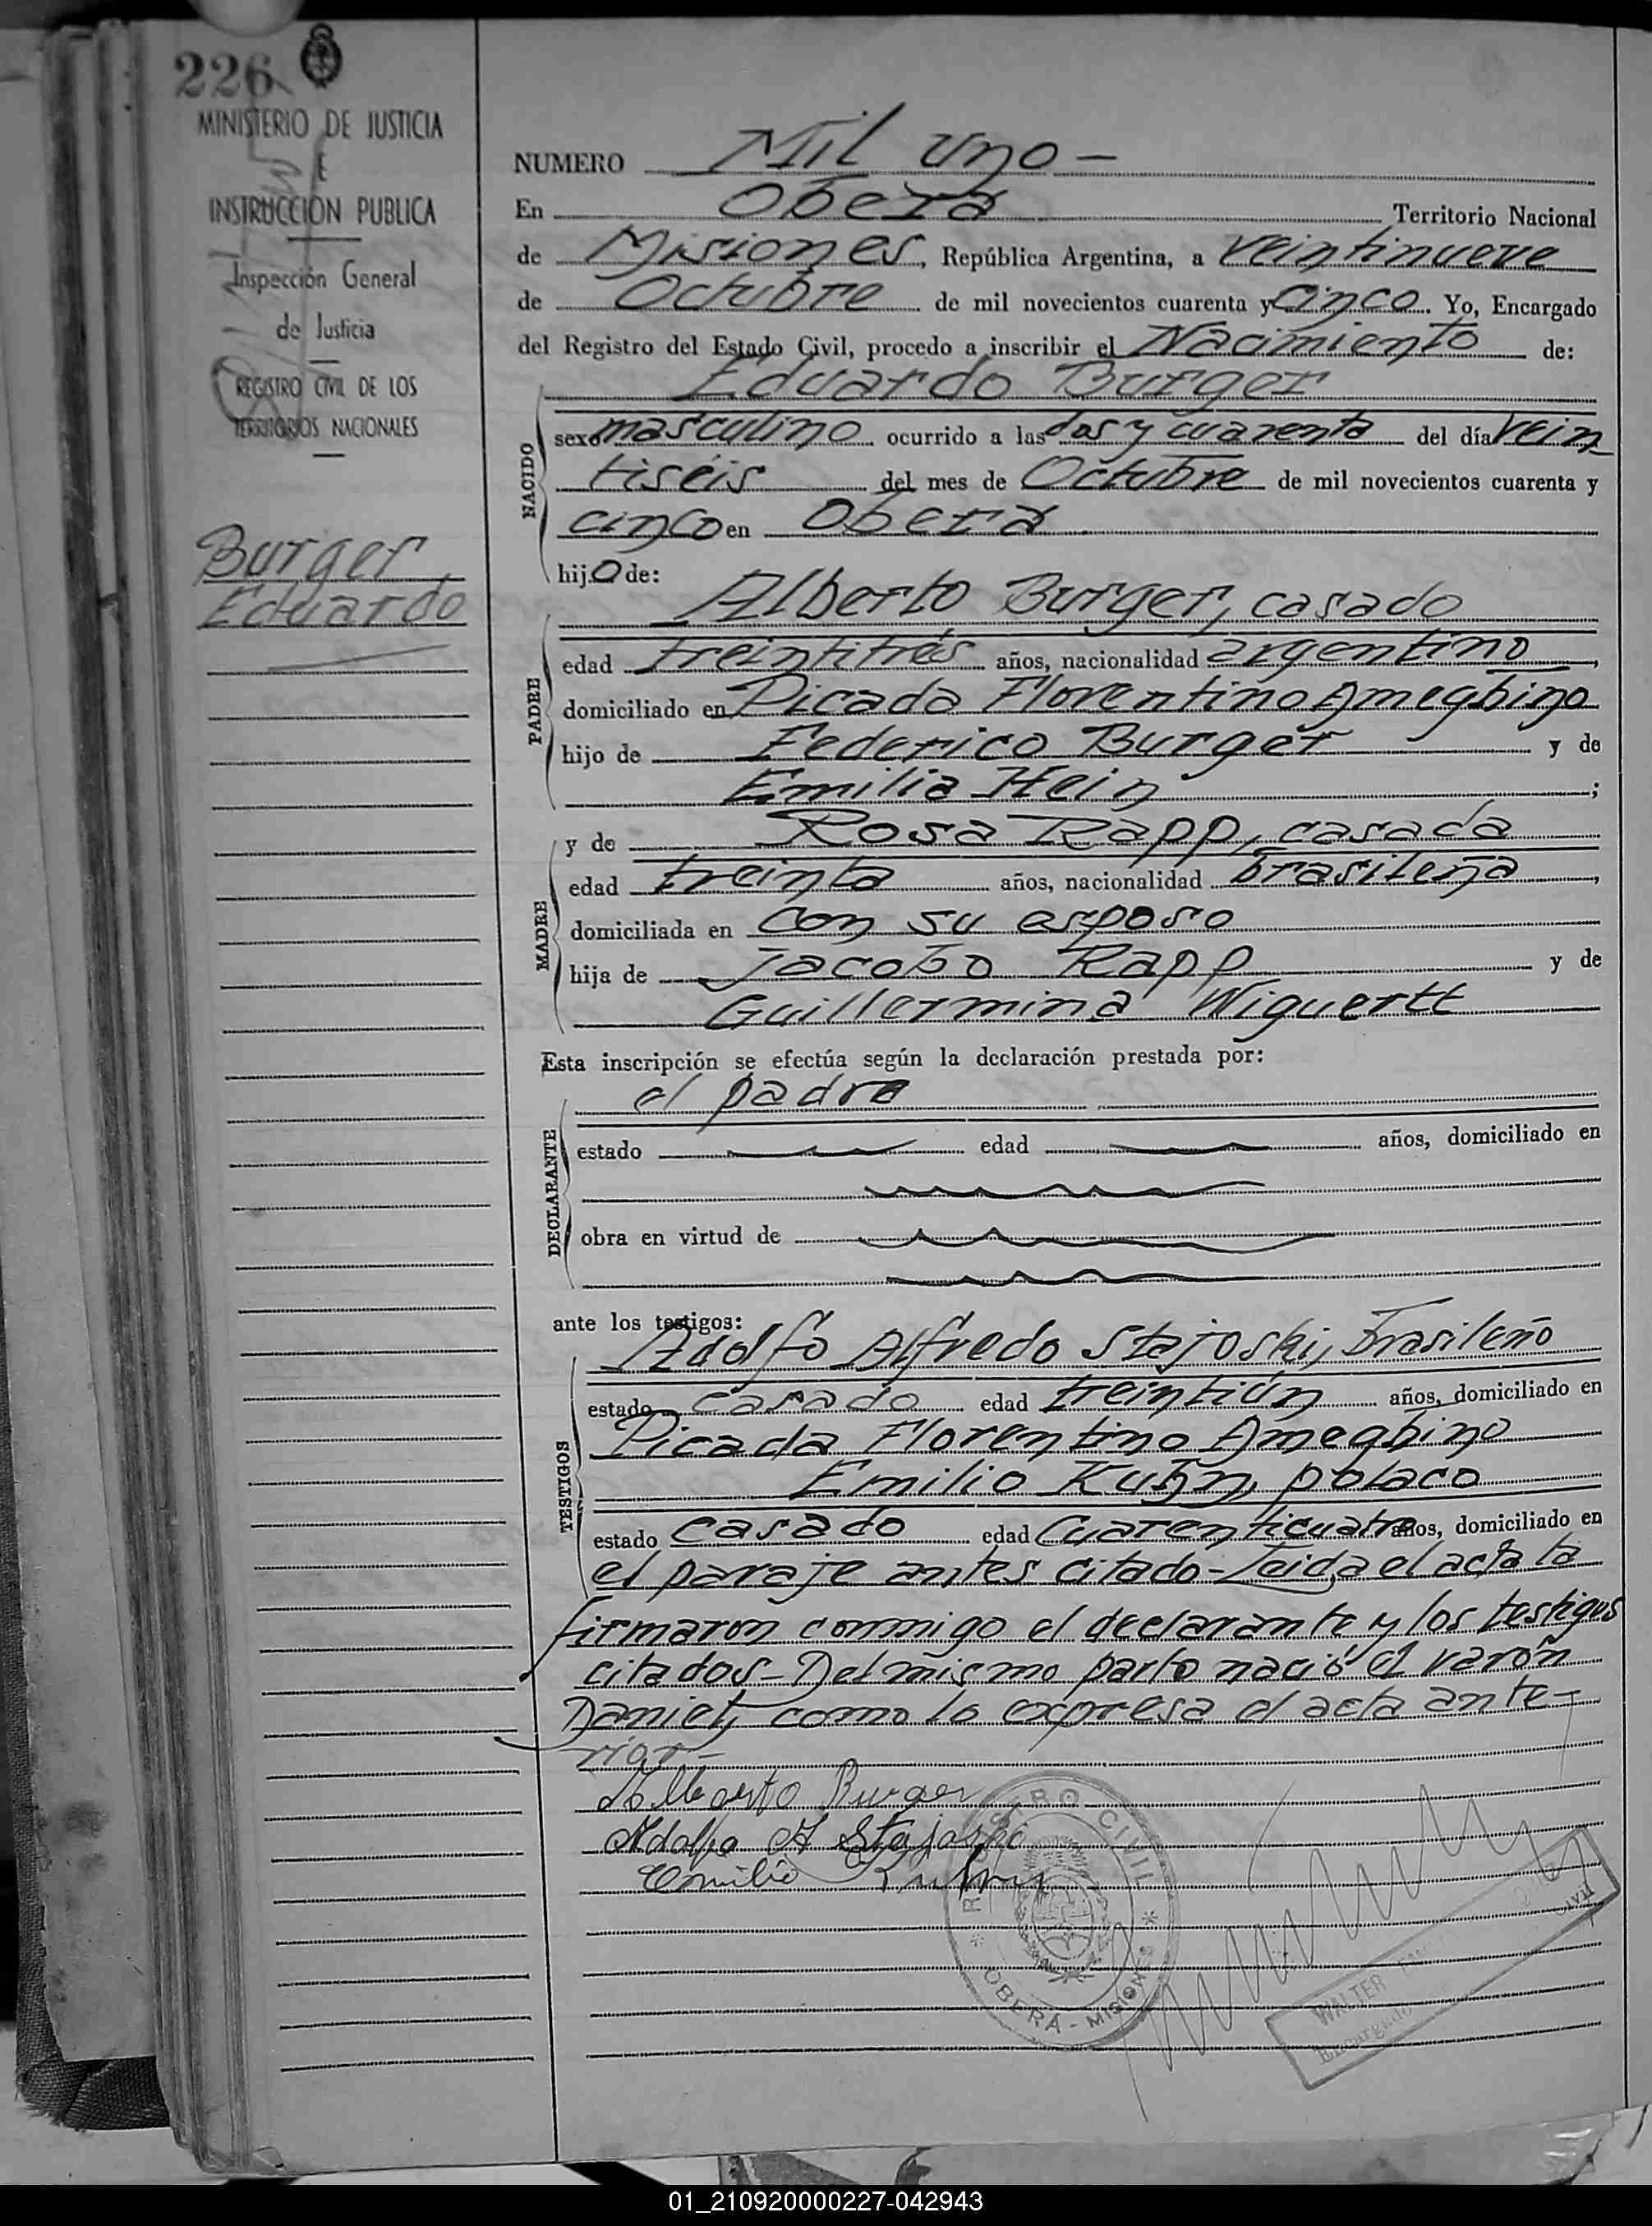 226
MINISTERIO DE JUSTICIA
E
INSTRUCCION PUBLICA
Inspección General
de Justicia
REGISTRO CIVIL DE LOS
TERRITORIOS NACIONALES
Burger,
Eduardo
NUMERO Mil uno-
En Oberá Territorio Nacional
de Misiones, República Argentina, a veintinueve
de Octubre de mil novecientos cuarenta y cinco. Yo, Encargado
del Registro del Estado Civil, procedo a inscribir el Nacimiento de:
Eduardo Burger
NACIDO
sexo masculino ocurrido a las dos y cuarenta del día vein
tiséis del mes de Octubre de mil novecientos cuarenta y
cinco en Oberá
hijo de:
PADRE
Alberto Burger, casado
edad treintitrés años, nacionalidad argentino,
domiciliado en Picada Florentino Ameghino
hijo de Federico Burger y de
Emilia Hein;
MADRE
y de Rosa Rapp, casada
edad treinta años, nacionalidad brasileña,
domiciliada en con su esposo
hija de Jacobo Rapp y de
Guillermina Wiguertt
Esta inscripción se efectúa según la declaración prestada por:
el padre
DECLARANTE
estado edad años, domiciliado en
obra en virtud de
ante los testigos:
TESTIGOS
Adolfo Alfredo Stajoski, brasileño
estado casado edad treintiún años, domiciliado en
Picada Florentino Ameghino
Emilio Kuhn, polaco
estado casado edad Cuarenticuatro años, domiciliado en
el paraje antes citado-Leida el acta la
firmaron conmigo el declarante y los testigos
citados-Del mismo parto nació el varón
Daniel, como lo expresa el acta ante-
rior-
Alberto Burger
Adolfo A Stajoski
Emilio Kuhn
REGISTRO CIVIL
OBERÁ - MISIONES
WALTER
Encargado
CIVIL
01_210920000227-042943